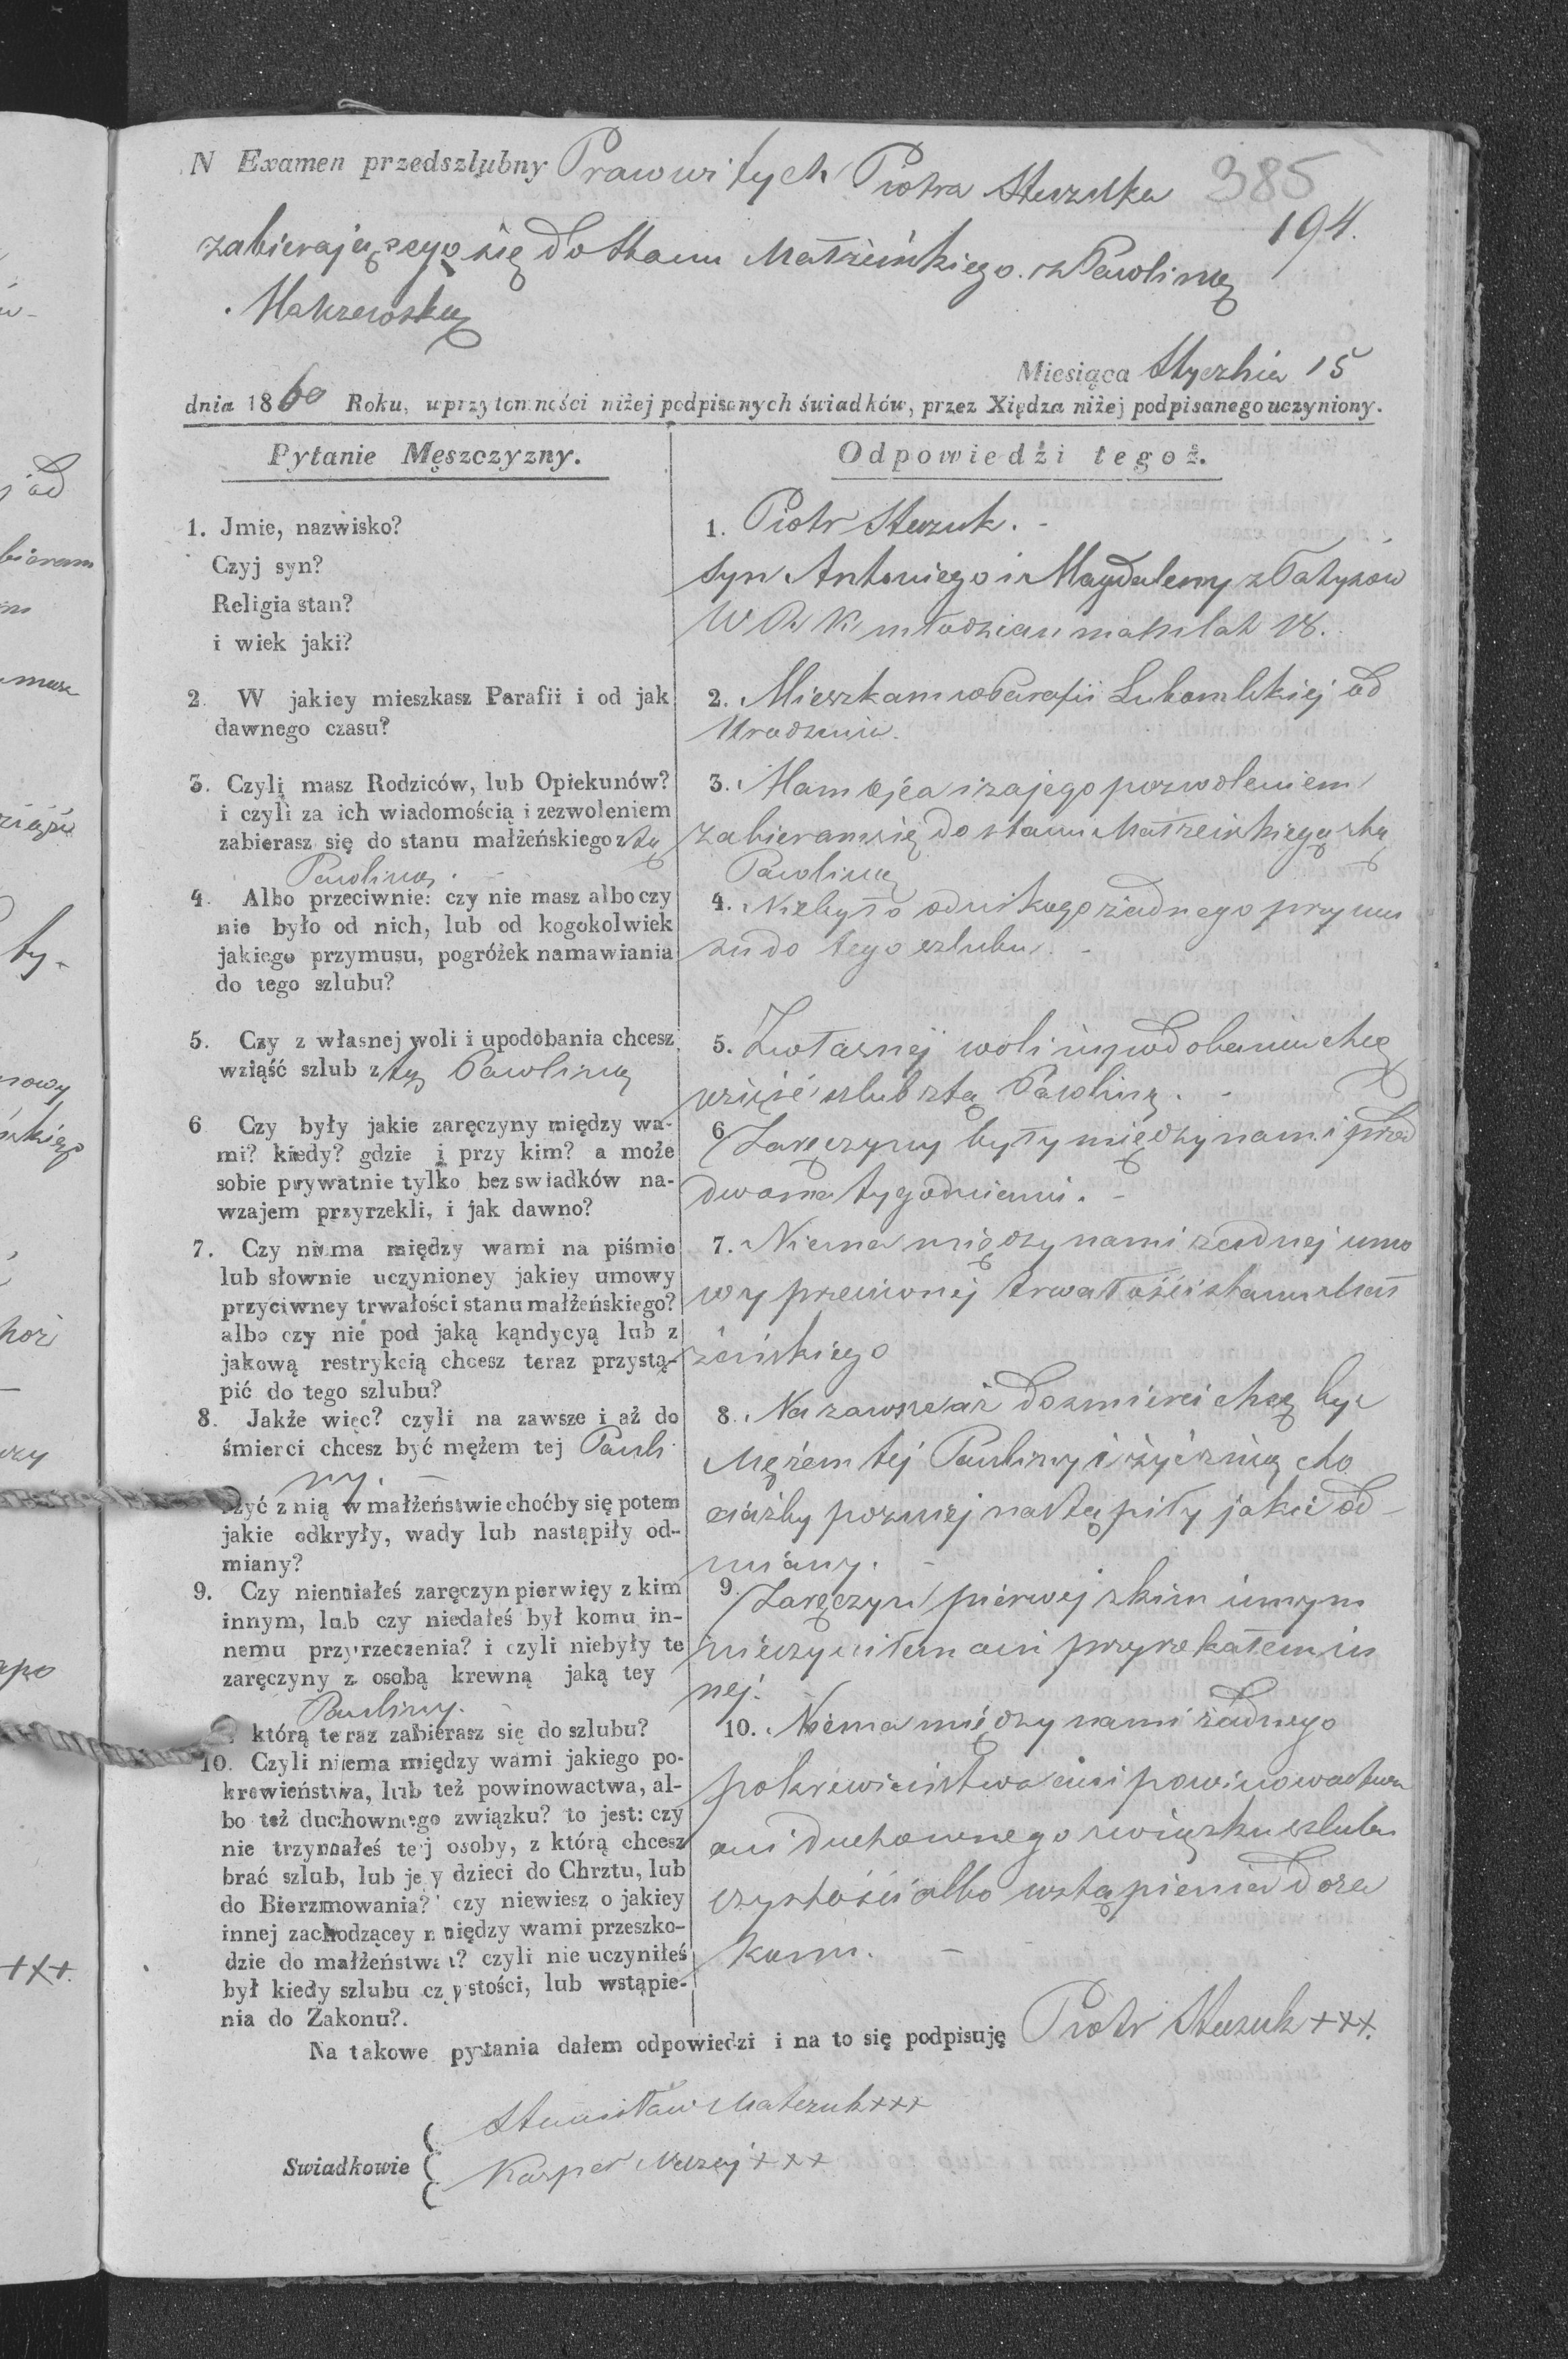 N Examen przedszlubny Prawwitych Piotra Steszuka 385
194.
zabierającego się do Stanu Małżeńskiego z Pawliną
Makrzewską
Miesiąca Stycznia 15
dnia 1860 Roku, w przytomności niżej podpisanych świadków, przez Xiędza niżej podpisanego uczyniony.
Pytanie Męszczyzny.
1. Jmie, nazwisko?
Czyj syn?
Religia stan?
i wiek jaki?
2. W jakiey mieszkasz Parafii i od jak
dawnego czasu?
3. Czyli masz Rodziców, lub Opiekunów?
i czyli za ich wiadomością i zezwoleniem
zabierasz się do stanu małżeńskiego z tą
Pawliną.
4. Albo przeciwnie: czy nie masz albo czy
nie było od nich, lub od kogokolwiek
jakiego przymusu, pogróżek namawiania
do tego szlubu?
5. Czy z własnej woli i upodobania chcesz
wziąść szlub z tą Pawliną
6 Czy były jakie zaręczyny między wa-
mi? kiedy? gdzie i przy kim? a może
sobie prywatnie tylko bez swiadków na-
wzajem przyrzekli, i jak dawno?
7. Czy niema między wami na piśmie
lub słownie uczynioney jakiey umowy
przyciwney trwałości stanu małżeńskiego?
albo czy nie pod jaką kąndycyą lub z
jakową restrykcią chcesz teraz przystą-
pić do tego szlubu?
8. Jakże więc? czyli na zawsze i aż do
śmierci chcesz być mężem tej Pauli
ny.
żyć z nią w małżeństwie choćby się potem
jakie odkryły, wady lub nastąpiły od-
miany?
9. Czy niemiałeś zaręczyn pierwięy z kim
innym, lub czy niedałeś był komu in-
nemu przyrzeczenia? i czyli niebyły te
zaręczyny z osobą krewną jaką tey
Pauliny.
którą teraz zabierasz się do szlubu?
10. Czyli niema między wami jakiego po-
krewieństwa, lub też powinowactwa, al-
bo też duchownego związku? to jest: czy
nie trzymałeś tej osoby, z którą chcesz
brać szlub, lub jey dzieci do Chrztu, lub
do Bierzmowania? czy niewiesz o jakiey
innej zachodzącey między wami przeszko-
dzie do małżeństwa? czyli nie uczyniłeś
był kiedy szlubu czystości, lub wstąpie-
nia do Zakonu?.
Odpowiedźi tegoż.
1. Piotr Steszuk. -
syn Antoniego i Magdaleny z
W R K młodzian mam lat 18.
2. Mieszkam w Parafii Lubomlskiej od
Urodzenia.
3. Mam ojca i za jego pozwoleniem
zabieram się do stanu Małżeińskiego z tą
Pawliną
4. Niebyło od nikogo żadnego przymu
szu do tego szlubu. -
5. Z własnej woli i upodobania chcę
wziąść szlub z tą Pawliną. -
6 Zaręczyny były między nami przed
dwoma tygodniami. -
7. Niema między nami żadnej umo
wy przeciwnej trwałości stanu Mał
żeńskiego
8. Na zawsze i aż do śmierci chcę być
Mężem tej Pauliny i żyć z nią cho
ciażby pozniej nastąpiły jakie od-
miany. -
9. Zaręczyn pierwej z kim innym
nieczyniłem ani przyrzekałem in
nej.
10. Niema między nami żadnego
pokrewieństwa ani powinowactwa
ani duchownego związku szlubu
czystości albo wstąpienia do za
konu. -
Na takowe pytania dałem odpowiedzi i na to się podpisuję Piotr Steszuk +++.
Stanisław Materzuk +++
Swiadkowie
Kasper +++